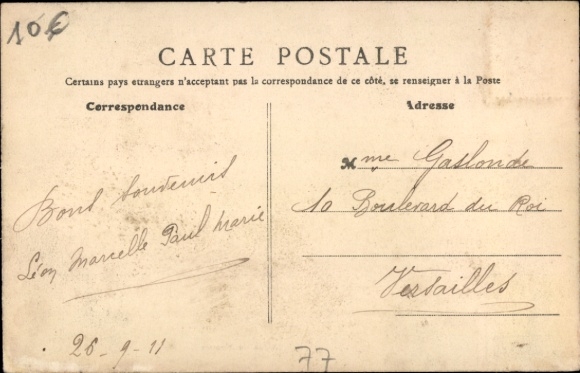 10€
CARTE POSTALE
Certains pays etrangers n'acceptant pas la correspondance de ce côté, se renseigner à la Poste
Correspondance
Adresse
Bons Souvenirs
Léon Marcelle Paul Marie
26-9-11
Mme Gaslonde
10 Boulevard du Roi
Versailles
77